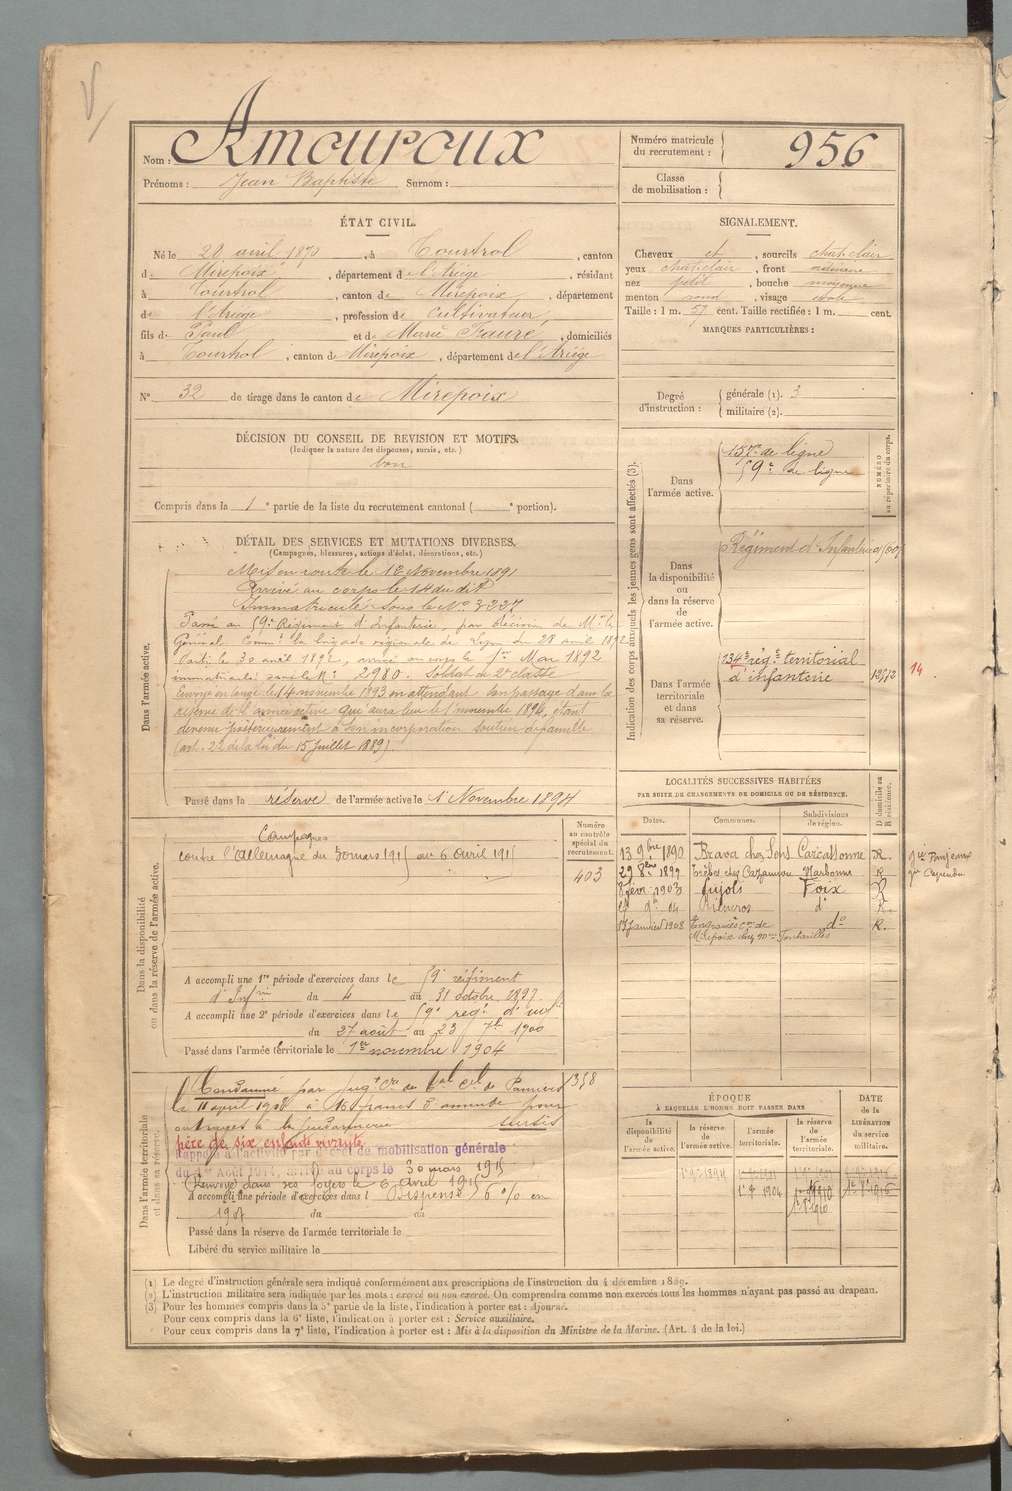 Nom : Amouroux
Prénoms : Jean Baptiste Surnom :
Numéro matricule du recrutement : 956
Classe de mobilisation :
ÉTAT CIVIL.
Né le 20 avril 1870, à Tourtrol, canton
de Mirepoix, département de l'Ariège, résidant
à Tourtrol, canton de Mirepoix, département
de l'Ariège, profession de cultivateur,
fils de Paul et de Marie Fauré, domiciliés
à Tourtrol, canton de Mirepoix, département de l'Ariège
N° 32 de tirage dans le canton de Mirepoix
SIGNALEMENT.
Cheveux et, sourcils chat. clair
yeux chat. clair, front ordinaire
nez petit, bouche moyenne
menton rond, visage ovale
Taille : 1 m. 57 cent. Taille rectifiée : 1 m. cent.
MARQUES PARTICULIÈRES :
Degré d'instruction : générale (1). 3
militaire (2).
DÉCISION DU CONSEIL DE REVISION ET MOTIFS.
(Indiquer la nature des dispenses, sursis, etc.)
bon
Compris dans la 1e partie de la liste du recrutement cantonal ( e portion).
DÉTAIL DES SERVICES ET MUTATIONS DIVERSES.
(Campagnes, blessures, actions d'éclat, décorations, etc.)
Dans l'armée active.
Mis en route le 12 Novembre 1891
Arrivé au corps le 14 du dit
Immatriculé sous le N° 3227
Passé au 59e Régiment d'Infanterie, par décision de Mr le
Général Commt la brigade régionale de Lyon du 28 avril 1892
Parti le 30 avril 1892, arrivé au corps le 1er Mai 1892
immatriculé sous le N° 2980. Soldat de 2e classe
Envoyé en congé le 14 novembre 1893 en attendant son passage dans la
réserve de l'armée active qui aura lieu le 1er novembre 1894, étant
devenu postérieurement à son incorporation soutien de famille
(art. 22 de la loi du 15 Juillet 1889).
Passé dans la réserve de l'armée active le 1er Novembre 1894
Indication des corps auxquels les jeunes gens sont affectés (3).
NUMÉRO au répertoire du corps.
Dans l'armée active.
157e de ligne
59e de ligne
Dans la disponibilité ou dans la réserve de l'armée active.
Régiment d'Infanterie
Dans l'armée territoriale et dans sa réserve.
134e rég. territorial
d'infanterie
14
Dans la disponibilité ou dans la réserve de l'armée active.
Numéro au contrôle spécial du recrutement.
403
Campagnes
contre l'Allemagne du 30 mars 1915 au 6 avril 1915
A accompli une 1re période d'exercices dans le 59e régiment
d'Infrie du 4 au 31 octobre 1897.
A accompli une 2e période d'exercices dans le 59e rég. d'inf
du 27 août au 23 7bre 1900
Passé dans l'armée territoriale le 1er novembre 1904
LOCALITÉS SUCCESSIVES HABITÉES
PAR SUITE DE CHANGEMENTS DE DOMICILE OU DE RÉSIDENCE.
Dates. Communes. Subdivisions de région. D domicile ou R résidence.
13 9bre 1890 Carcassonne R.
29 8bre 1899 Trèbes, chez Narbonne R.
8 févr. 1903 Pujols Foix R
04 Rieucros do R.
17 Janvier 1908 Engraviès con de Mirepoix do R.
Dans l'armée territoriale et dans sa réserve.
Condamné par Jugt Cre du bal Cel de Pamiers 1358
le 11 april 1908 à 16 francs d'amende pour
outrages à la gendarmerie sursis
père de six enfants vivants
Rappelé à l'activité par décret de mobilisation générale
du 1er Août 1914, arrivé au corps le 30 mars 1915
Renvoyé dans ses foyers le 6 avril 1915
A accompli une période d'exercices dans l Dispensé 6 % en
1907 du au
Passé dans la réserve de l'armée territoriale le
Libéré du service militaire le
ÉPOQUE
A LAQUELLE L'HOMME DOIT PASSER DANS
la disponibilité de l'armée active.
la réserve de l'armée active.
l'armée territoriale.
la réserve de l'armée territoriale.
DATE de la LIBÉRATION du service militaire.
1er 9bre 1894
1er 9bre 1904
(1) Le degré d'instruction générale sera indiqué conformément aux prescriptions de l'instruction du 4 décembre 1889.
(2) L'instruction militaire sera indiquée par les mots : exercé ou non exercé. On comprendra comme non exercés tous les hommes n'ayant pas passé au drapeau.
(3) Pour les hommes compris dans la 5e partie de la liste, l'indication à porter est : Ajourné.
Pour ceux compris dans la 6e liste, l'indication à porter est : Service auxiliaire.
Pour ceux compris dans la 7e liste, l'indication à porter est : Mis à la disposition du Ministre de la Marine. (Art. 4 de la loi.)